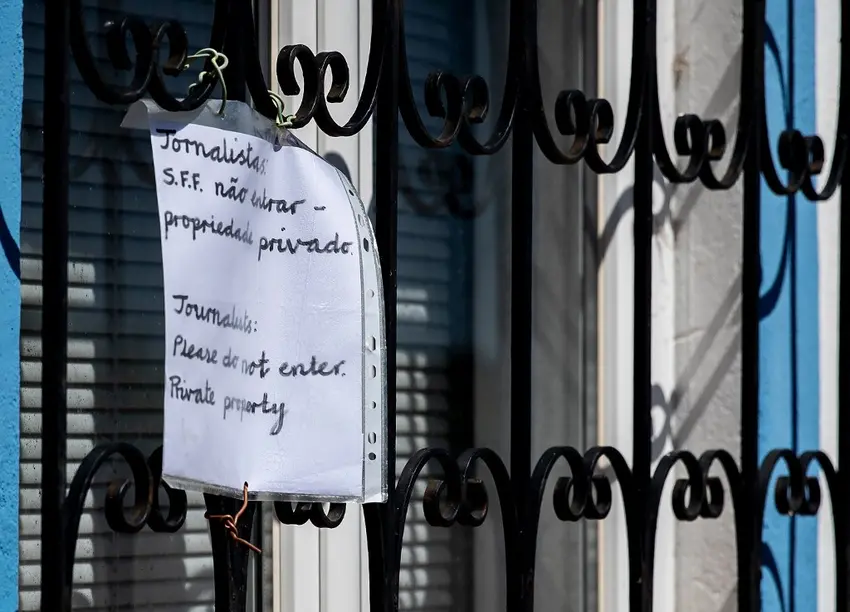 Jornalistas:
S.F.F. não entrar -
propriedade privado.
Journalists:
Please do not enter.
Private property